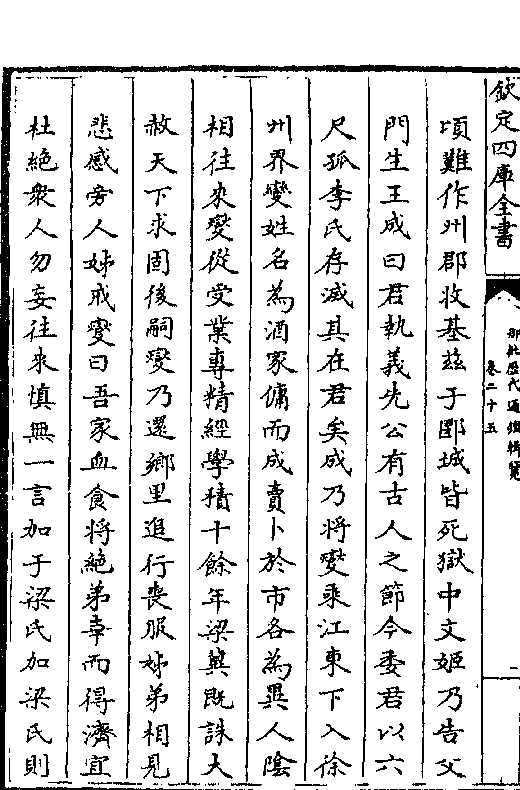 欽定四庫全書
御批歷代通鑑輯覽
卷二十五
頃難作州郡收基兹于郾城皆死獄中文姬乃告父
門生王成曰君執義先公有古人之節今委君以六
尺孤李氏存滅其在君矣成乃將變乘江東下入徐
州界變姓名為酒家傭而成賣卜於市各為異人陰
相往來變從受業專精經學積十餘年梁冀既誅大
赦天下求固後嗣變乃還鄉里追行喪服姊弟相見
悲感旁人姊戒變曰吾家血食將絶弟幸而得濟宜
杜絶衆人勿妄往來慎無一言加于梁氏加梁氏則